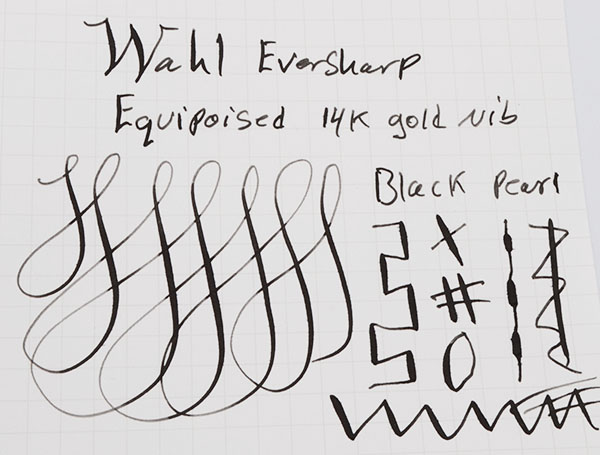 Wahl Eversharp
Equipoised 14K gold nib
Black Pearl